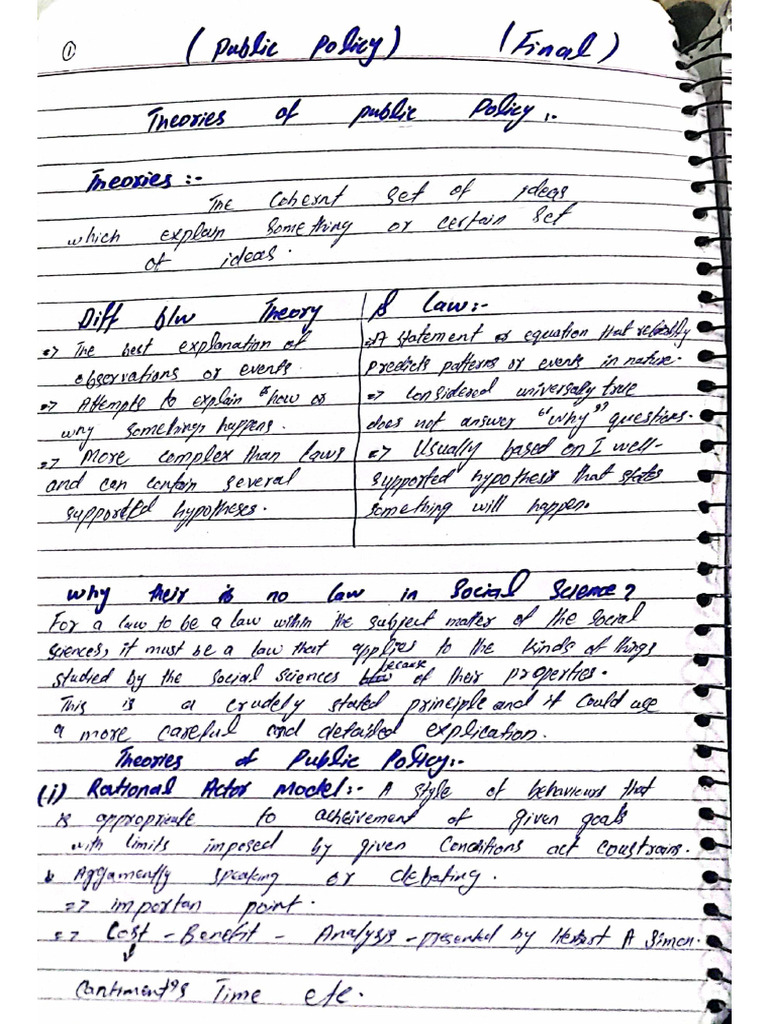 ① (Public Policy) (Final)
Theories of public Policy:-
Theories:-
The Cohernt set of ideas
which explain something or certain set
of ideas.
Diff b/w Theory & Law:-
=> The best explanation of
observations or events.
=> Attempts to explain "how or
why somethings happens.
=> More complex than laws
and can contain several
supported hypotheses.
=> A statement or equation that reliably
predicts patterns or events in nature.
=> Considered universaly true
does not answer "why" questions.
=> Usually based on 1 well-
supported hypothesis that states
something will happen.
why their is no law in Social Science?
For a law to be a law within the subject matter of the social
sciences, it must be a law that applies to the kinds of things
studied by the social sciences because of their properties.
This is a crudely stated principle and it could use
a more careful and detailed explication.
Theories of Public Policy:-
(i) Rational Actor Model:- A style of behaviours that
is appropriate to acheivement of given goals
with limits imposed by given Conditions act constrains.
speaking or debating.
=> importan point.
=> Cost - Benefit - Analysis - presented by Herbert A Simon.
Time etc.